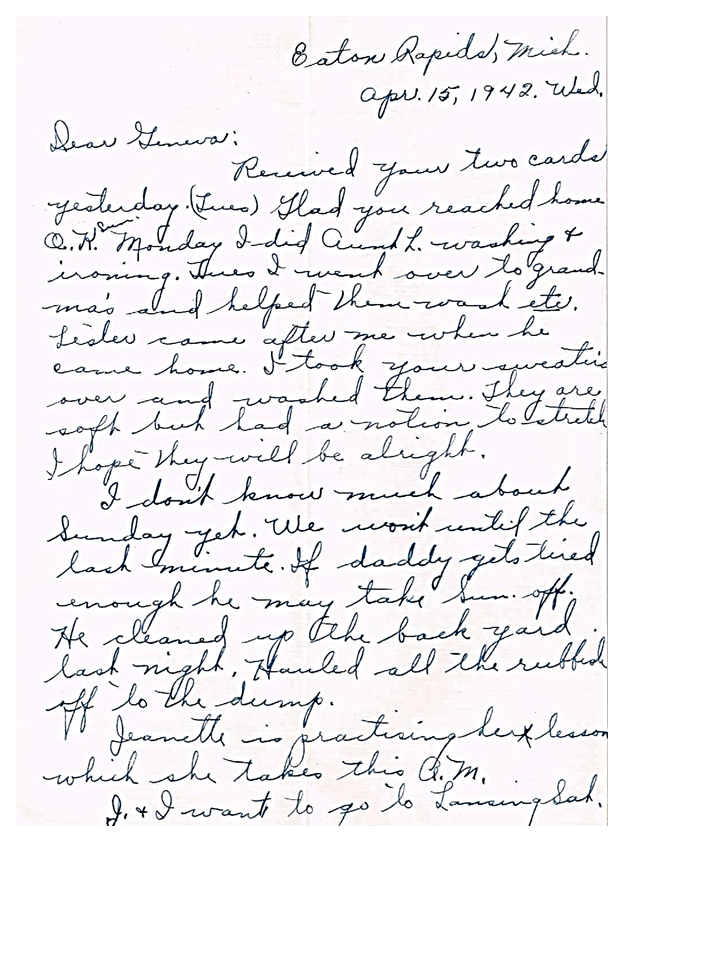 Eaton Rapids, Mich.
Apr. 15, 1942. Wed.
Dear Geneva:
Received your two cards
yesterday. (Tues) Glad you reached home
O.K. Sun. Monday I did Aunt L. washing &
ironing. Tues I went over to grand-
ma's and helped them wash etc.
Lester came after me when he
came home. I took your sweaters
over and washed them. They are
soft but had a notion to stretch
I hope they will be alright.
I don't know much about
Sunday yet. We won't until the
last minute. If daddy gets tired
enough he may take Sun. off.
He cleaned up the back yard
last night. Hauled all the rubbish
off to the dump.
Jeanette is practising her lesson
which she takes this A.M.
J. & I want to go to Lansing Sat.